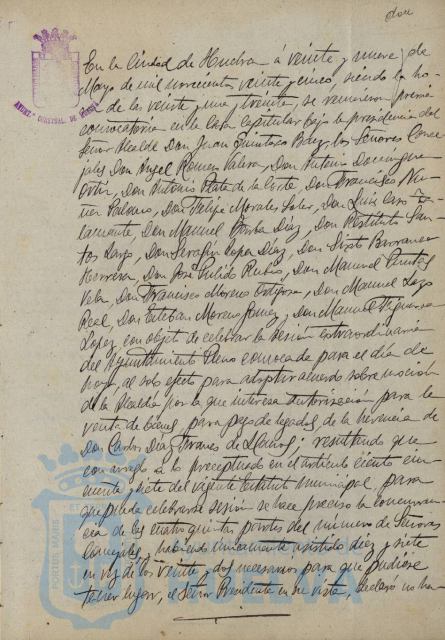 En la Ciudad de Huelva á veinte y nueve de
Mayo de mil novecientos veinte y cinco, siendo la ho-
ra de las veinte y una y treinta, se reunieron previa
convocatoria en la Casa Capitular bajo la presidencia del
Señor Alcalde Don Juan Quintero Báez, los Señores Conce-
jales Don Angel Romero Valera, Don Antonio Domínguez
Ortiz, Don Antonio Plata de la Corte, Don Francisco
Don Felipe Morales Soler, Don Luis
Don Manuel Barba Díaz, Don Restituto San-
tos Lago, Don Serafín López Díaz, Don Sixto Barranco
Herrera, Don José Pulido Rubio, Don Manuel Puentes
Vela, Don Francisco Moreno Don Manuel Lago
Real, Don Esteban Moreno Gómez y Don Manuel Figueroa
Lopez con objeto de celebrar la sesión extraordinaria
del Ayuntamiento Pleno convocada para el día de
hoy, al solo efecto para adoptar acuerdo sobre moción
de la Alcaldía por la que interesa autorización para la
venta de bienes, para pago de legados, de la herencia de
Don Carlos Díaz Franco de Llanos; resultando que
con arreglo a lo preceptuado en el artículo ciento cin-
cuenta y siete del vigente Estatuto Municipal para
que pueda celebrarse sesión se hace preciso la concurren-
cia de las cuatro quintas partes del número de Señores
Concejales, habiendo únicamente asistido diez y siete
en vez de los veinte y dos necesarios para que pudiese
tener lugar, el Señor Presidente en su vista, declaró no ha-
PORTUS MARIS
HUELVA